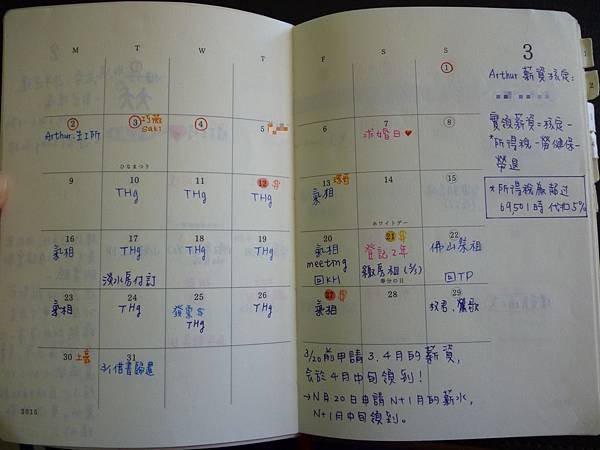 M T W T F S S
3
1
Arthur 薪資核定:
2 3 巧薇 4 5 6 7 8
Saki
Arthur-生I所
求婚日♥
ひなまつり
實領薪資=核定-
*所得稅-勞健保-
勞退
9 10 11 12 13 14 15
THg THg THg 氣相
ホワイトデー
*所得稅廠超过
69,501時 代扣5%
16 17 18 19 20 21 22
氣相 THg THg THg 氣相 登記2年 佛山
淡水房付訂 meeting 繳房租
回KH 春分の日 回TP
23 24 25 26 27 28 29
氣相 THg 發票$ THg 氣相
THg
30 31
3/1借書歸還
3/20前申請 3.4月的薪資,
會於4月中旬領到!
→N月20日申請N+1月的薪水,
N+1月中旬領到。
2015